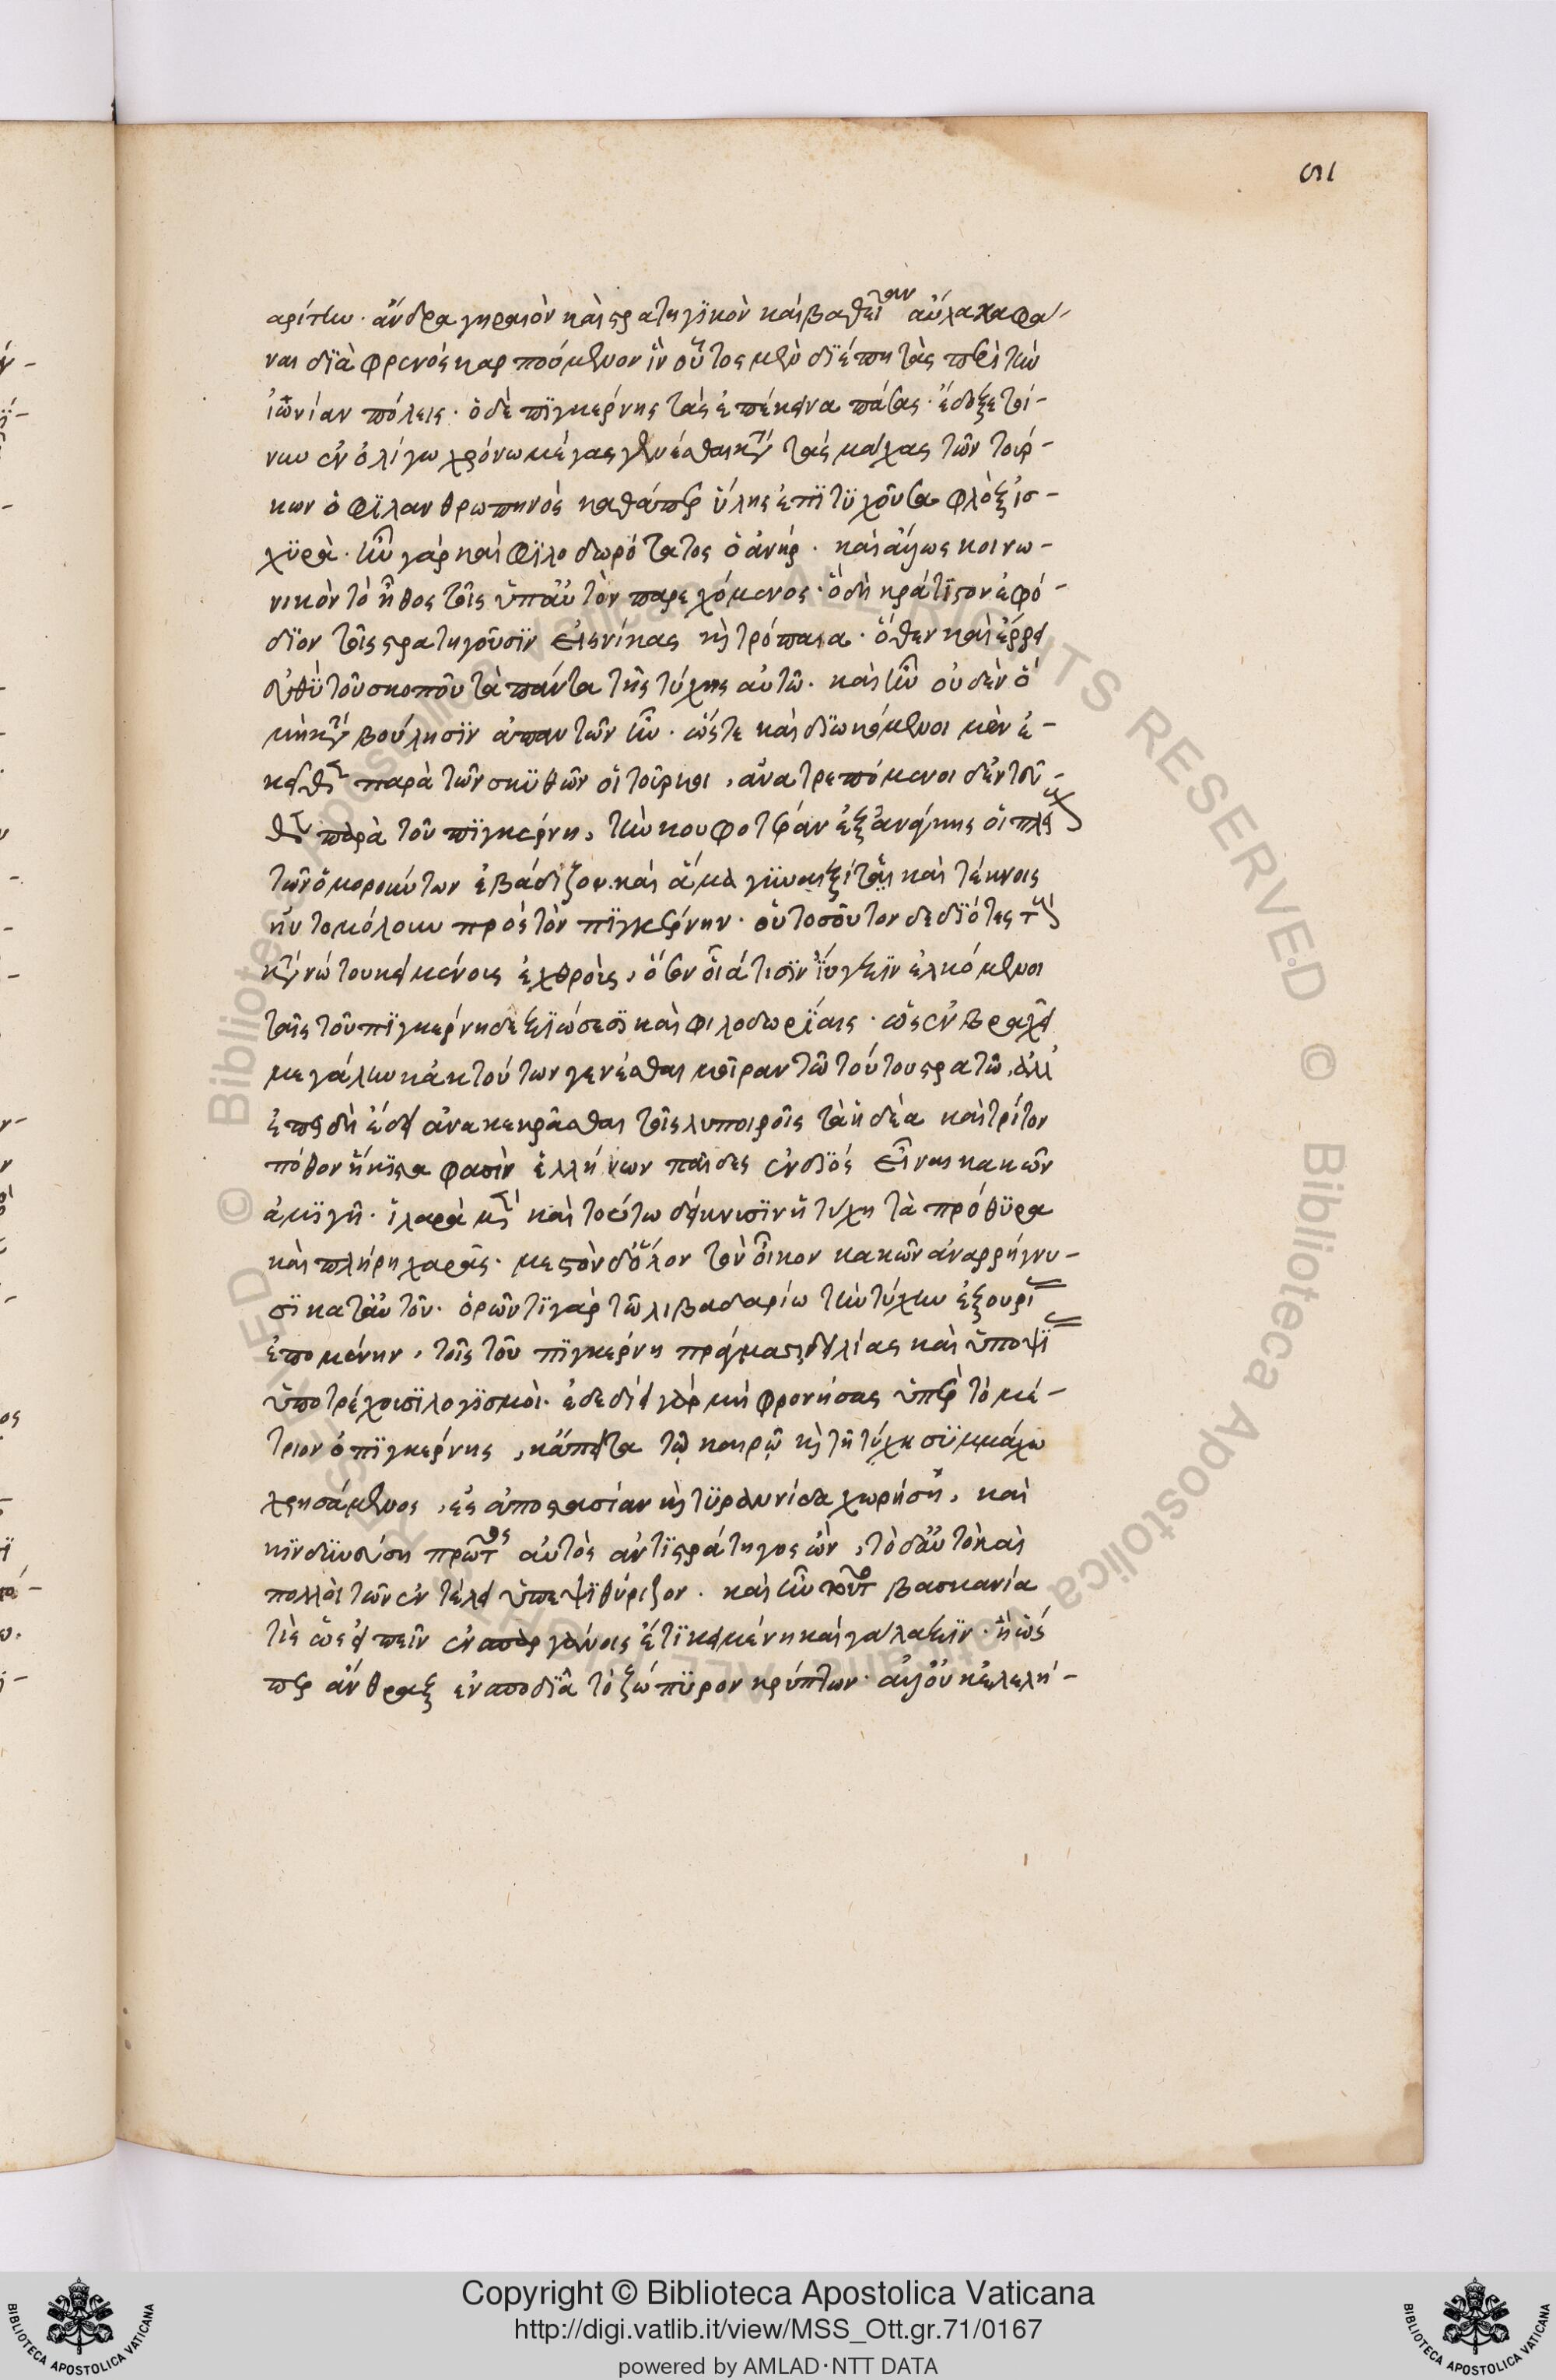 ϛι
αρίτην. ἄνδρα γηραιὸν καὶ στρατηγϊκὸν καὶ βαθεῖαν αὔλακα φα-
ναι δϊὰ φρενὸς καρπούμενον ἵν οὗτος μὲν δϊέπη τὰς περὶ τὴν
ἰωνίαν πόλεις. ὁ δὲ πϊγκέρνης τὰς ἐπέκεινα πάσας. ἔδοξε τοί-
νυν ἐν ὀλίγω χρόνω μέγας γενέσθαι κατὰ τὰς μάχας τῶν τούρ-
κων ὁ φϊλανθρωπηνὸς καθάπερ ὕλης ἐπϊτϋχοῦσα φλὸξ ἰσ-
χϋρά. ἦν γὰρ καὶ φϊλοδωρότατος ὁ ἀνήρ. καὶ ἄλλως κοινω-
νικὸν τὸ ἦθος τοῖς ὑπ αὐτὸν παρεχόμενος. ὃ δὴ κράτϊστον ἐφό-
δϊον τοῖς στρατηγοῦσϊν εἰς νίκας καὶ τρόπαια. ὅθεν καὶ ἔρρει
εὐθϋ τοῦ σκοποῦ τὰ πάντα τῆς τύχης αὐτῶ. καὶ ἦν οὐδὲν ὃ
μὴ κατὰ βούλησϊν ἀπαντῶν ἦν. ὥστε καὶ δϊωκόμενοι μὲν ἐ-
κεῖθεν παρὰ τῶν σκϋθῶν οἱ τοῦρκοι, ἀνατρεπόμενοι δ ἐντεῦ-
θεν παρὰ τοῦ πϊγκέρνη, τὴν κουφοτέραν ἐξ ἀνάγκης οἱ πλείους
τῶν ὁμορούντων ἐβάδϊζον. καὶ ἅμα γϋναιξί τε καὶ τέκνοις
ηὐτομόλουν πρὸς τὸν πϊγκέρνην. οὐ τοσοῦτον δεδϊότες τοὺς
κατὰ νώτου κειμένοις ἐχθροῖς, ὅσον οἷά τισϊν ἴϋγξϊν ἑλκόμενοι
ταῖς τοῦ πϊγκέρνη δεξϊώσεσϊ καὶ φιλοδωρίαις. ὡς ἐν βραχεῖ
μεγάλην κἀκ τούτων γενέσθαι μοῖραν τῶ τούτου στρατῶ. ἀλλ
ἐπειδὴ ἔδει ἀνακεκρᾶσθαι τοῖς λυπηροῖς τὰ ἡδέα καὶ τρίτον
πόθον ἥκϊστα φασὶν ἑλλήνων παῖδες ἐν δϊὸς εἶναι κακῶν
ἀμϊγῆ. ἱλαρὰ μὲν καὶ τούτω δείκνυσϊν ἡ τύχη τὰ πρόθϋρα
καὶ πλήρη χαρᾶς. μεστὸν δ ὅλον τὸν οἶκον κακῶν ἀναρρήγνυ-
σϊ κατ αὐτοῦ. ὁρῶντϊ γὰρ τῶ λιβαδαρίω τὴν τύχην ἐξουρί
ἑπομένην, τοῖς τοῦ πϊγκέρνη πράγμασι, δειλίας καὶ ὑποψΐ
ὑποτρέχουσϊ λογϊσμοὶ. ἐδεδίει γὰρ μὴ φρονήσας ὑπὲρ τὸ μέ-
τριον ὁ πϊγκέρνης, κἄπειτα τῷ καιρῷ καὶ τῆ τύχη σϋμμάχω
χρησάμενος, ἐς ἀποστασίαν καὶ τϋραννίδα χωρήσῃ, καὶ
κϊνδϋνεύση πρῶτος αὐτὸς ἀντϊστράτηγος ὤν, τὸ δ αὐτὸ καὶ
πολλοὶ τῶν ἐν τέλει ὑπεψϊθύριζον. καὶ ἦν τοῦτο βασκανία
τὶς ὡς εἰπεῖν ἐν σπαργάνοις ἔτϊ κειμένη καὶ γάλαξϊν. ἢ ὥσ
περ ἄνθραξ ἐν σποδϊᾶ τὸ ζώπϋρον κρύπτων. ἀλλ οὐκ ἐλελή-